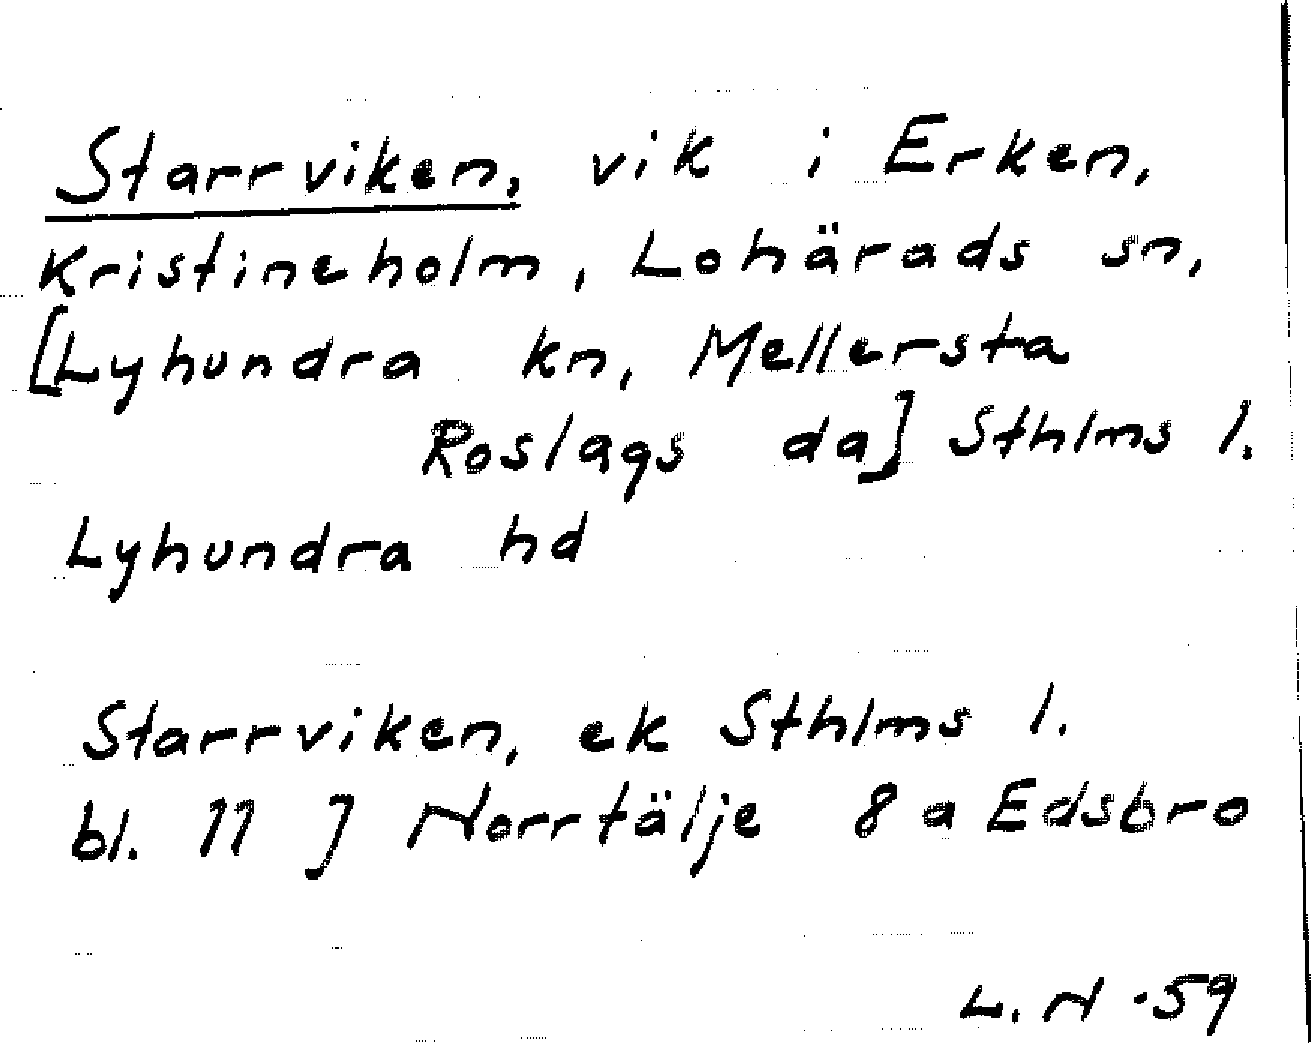 Starrviken, vik i Erken,
Kristineholm, Lohärads sn,
[Lyhundra kn, Mellersta
Roslags da] Sthlms l.
Lyhundra hd
Starrviken, ek Sthlms l.
bl. 11 J Norrtälje 8 a Edsbro
L. N -59